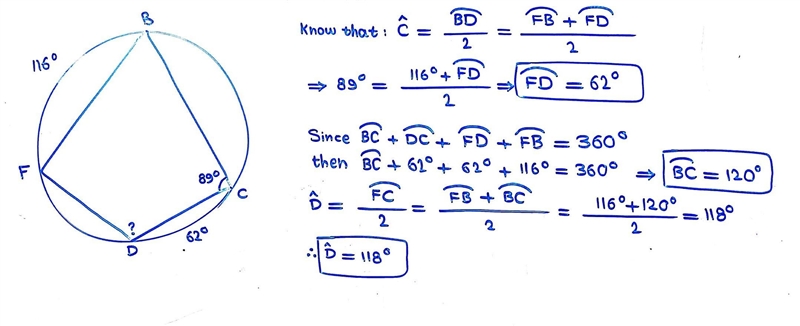 B
116°
F
89°
C
?
62°
D
Know that: Ĉ = B͡D/2 = (F͡B + F͡D)/2
⇒ 89° = (116° + F͡D)/2 ⇒ F͡D = 62°
Since B͡C + D͡C + F͡D + F͡B = 360°
then B͡C + 62° + 62° + 116° = 360° ⇒ B͡C = 120°
D̂ = F͡C/2 = (F͡B + B͡C)/2 = (116° + 120°)/2 = 118°
∴ D̂ = 118°